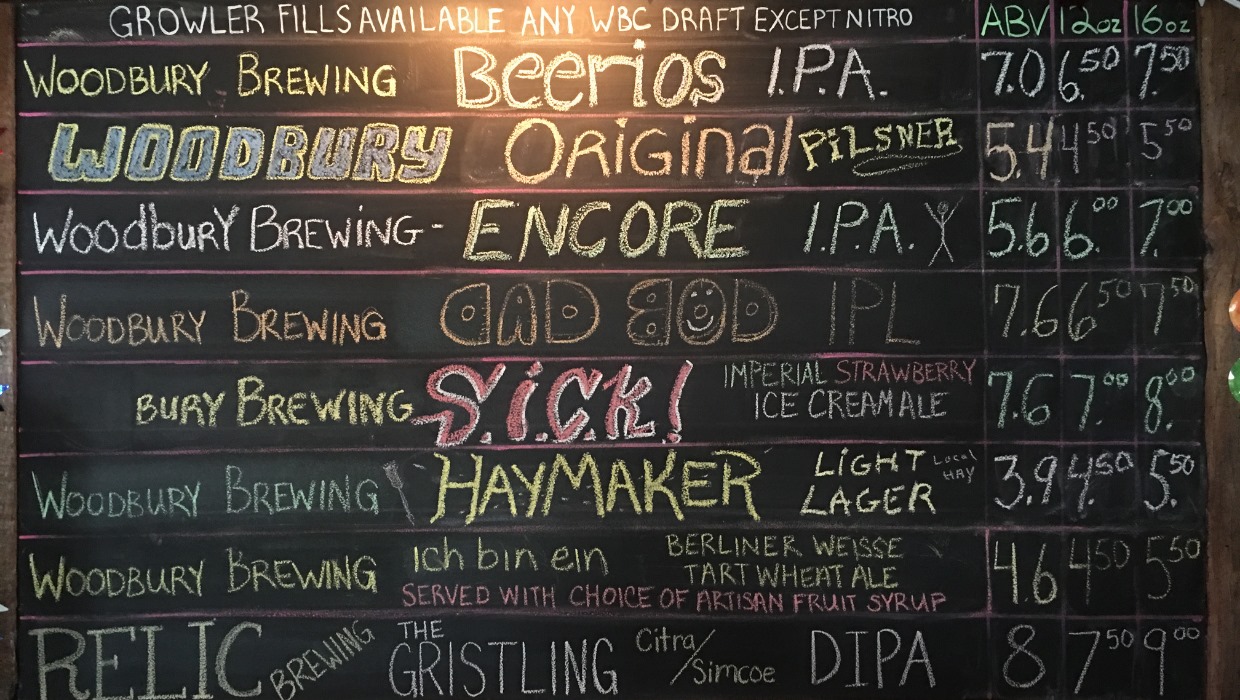 GROWLER FILLS AVAILABLE ANY WBC DRAFT EXCEPT NITRO ABV 12oz 16oz
WOODBURY BREWING Beerios I.P.A. 7.0 6.50 7.50
WOODBURY ORiGinal PiLSNER 5.4 4.50 5.50
WoodburY BREWiNG- ENCORE I.P.A. 5.6 6.00 7.00
WOODBURY BREWING DAD BOD IPL 7.6 6.50 7.50
BURY BREWING S.i.C.K! IMPERIAL STRAWBERRY ICE CREAM ALE 7.6 7.00 8.00
WOODBURY BREWING HAYMAKER LiGHT LAGER Local HAY 3.9 4.50 5.50
WOODBURY BREWING ich bin ein BERLINER WEISSE TART WHEAT ALE 4.6 4.50 5.50
SERVED WITH CHOICE OF ARTISAN FRUIT SYRUP
RELIC BREWING THE GRISTLING Citra/Simcoe DIPA 8 7.50 9.00